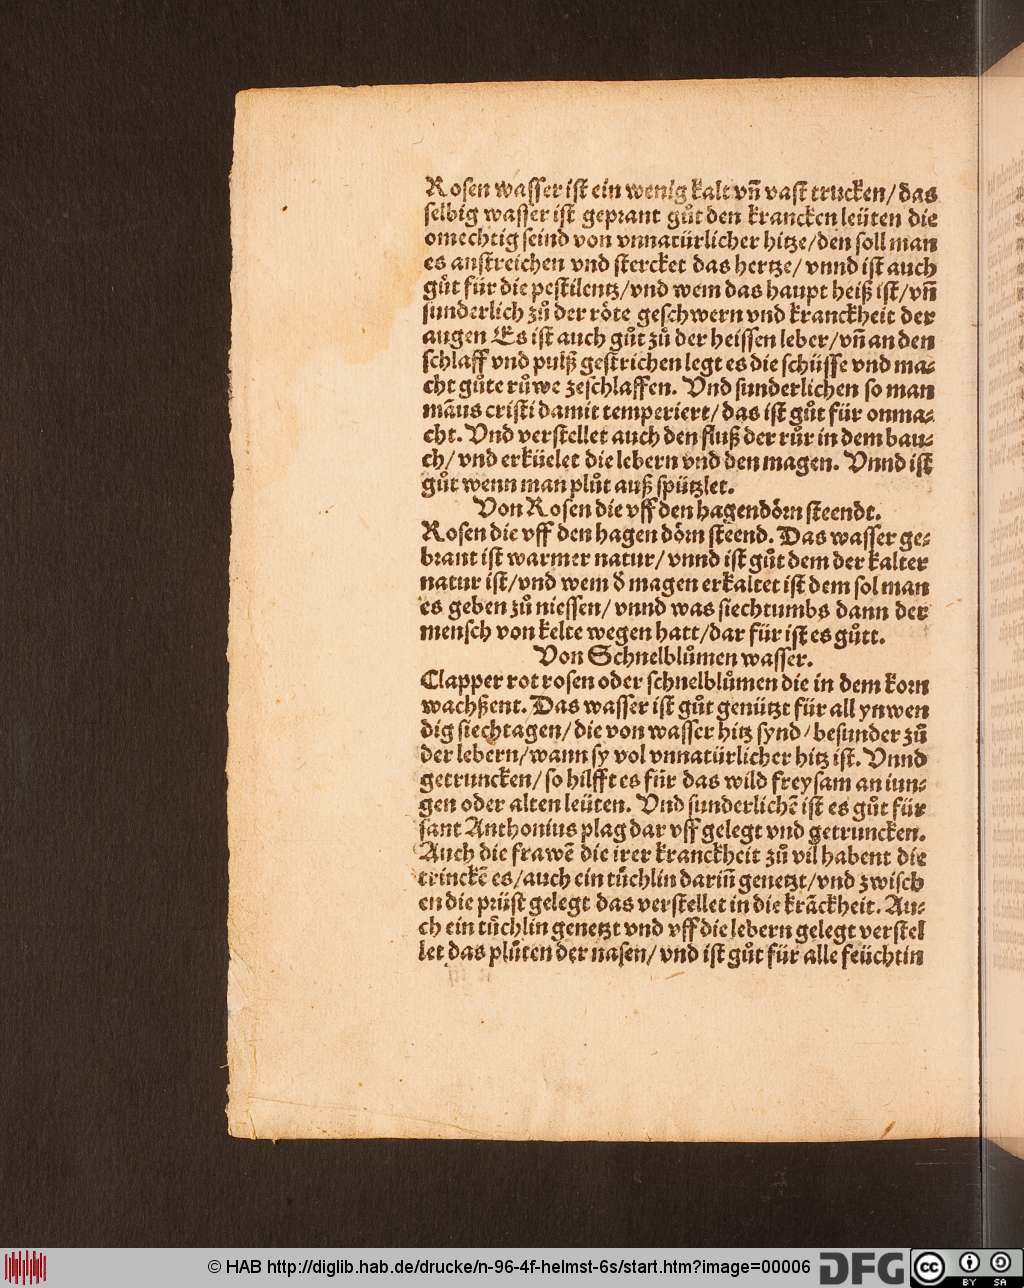 Rosen wasser ist ein wenig kalt vñ vast trucken/das
selbig wasser ist geprant gůt den krancken leüten die
omechtig seind von vnnatürlicher hitze/den soll man
es anstreichen vnd stercket das hertze/vnnd ist auch
gůt für die pestilentz/vnd wem das haupt heiß ist/vñ
sunderlich zů der röte geschwern vnd kranckheit der
augen Es ist auch gůt zů der heissen leber/vñ an den
schlaff vnd pulß gestrichen legt es die schüsse vnd ma⸗
cht gůte růwe zeschlaffen. Vnd sunderlichen so man
mãus cristi damit temperiert/das ist gůt für onma⸗
cht. Vnd verstellet auch den fluß der růr in dem bau⸗
ch/vnd erküelet die lebern vnd den magen. Vnnd ist
gůt wenn man plůt auß spützlet.
Von Rosen die vff den hagendörn steendt.
Rosen die vff den hagen dörn steend. Das wasser ge⸗
brant ist warmer natur/vnnd ist gůt dem der kalter
natur ist/vnd wem ð magen erkaltet ist dem sol man
es geben zů niessen/vnnd was siechtumbs dann der
mensch von kelte wegen hatt/dar für ist es gůtt.
Von Schnelblůmen wasser.
Clapper rot rosen oder schnelblůmen die in dem korn
wachßent. Das wasser ist gůt genützt für all ynwen
dig siechtagen/die von wasser hitz synd/besunder zů
der lebern/wann sy vol vnnatürlicher hitz ist. Vnnd
getruncken/so hilfft es für das wild freysam an iun⸗
gen oder alten leüten. Vnd sunderlichẽ ist es gůt für
sant Anthonius plag dar vff gelegt vnd getruncken.
Auch die frawẽ die irer kranckheit zů vil habent die
trinckẽ es/auch ein tůchlin dariñ genetzt/vnd zwisch
en die prüst gelegt das verstellet in die krãckheit. Au⸗
ch ein tůchlin genetzt vnd vff die lebern gelegt verstel
let das plůten der nasen/vnd ist gůt für alle feüchtin
© HAB http://diglib.hab.de/drucke/n-96-4f-helmst-6s/start.htm?image=00006
DFG
cc
BY SA